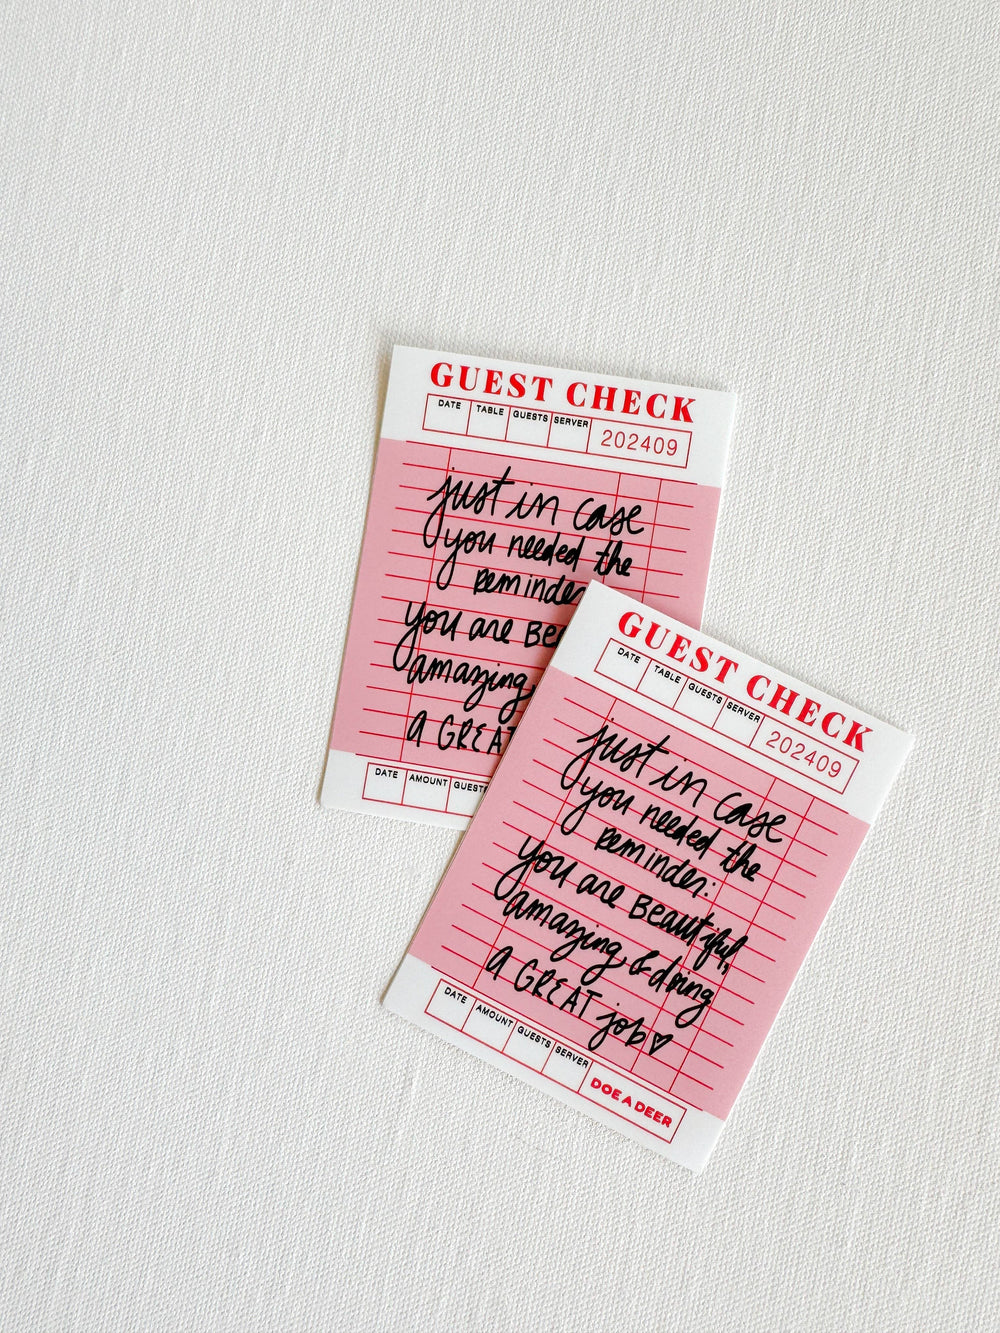 GUEST CHECK
DATE TABLE GUESTS SERVER
202409
just in case
you needed the
reminder
you are Be
amazing,
A GREAT
DATE AMOUNT GUEST
GUEST CHECK
DATE TABLE GUESTS SERVER
202409
just in case
you needed the
reminder:
you are Beautiful,
amazing, & doing
A GREAT job♡
DATE AMOUNT GUESTS SERVER
DOE A DEER